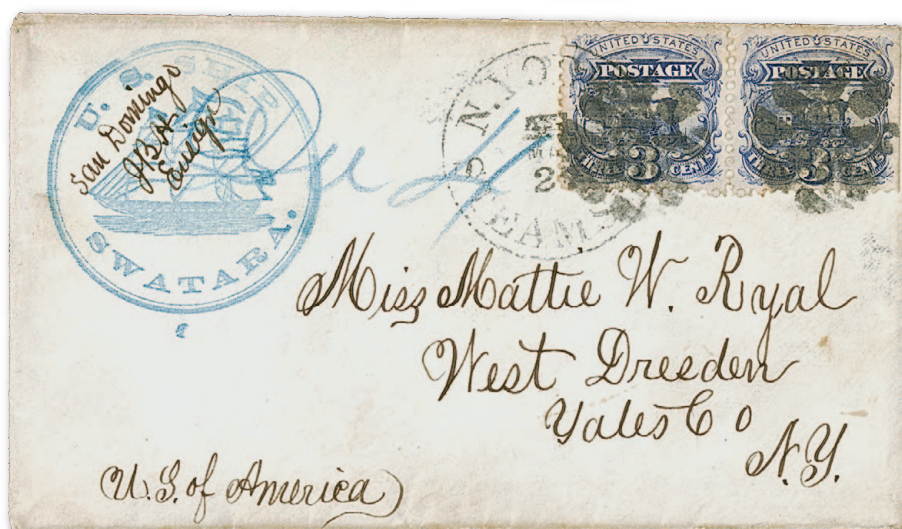 U. S. SHIP
SWATARA.
San Domingo
JBH
Ensign
N.Y.
STEAMSHIP
2
UNITED STATES
POSTAGE
THREE 3 CENTS
UNITED STATES
POSTAGE
THREE 3 CENTS
Miss Mattie W. Ryal
West Dresden
Yates Co
N.Y.
(U.S. of America)